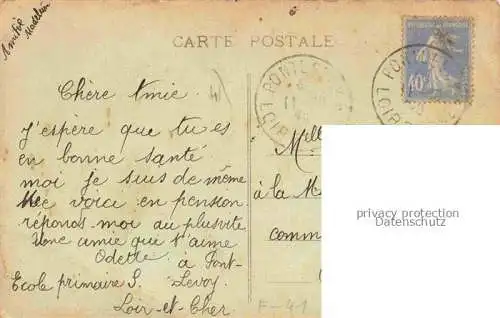 Amitié
Madeleine
CARTE POSTALE
Chère Amie
J'espère que tu es
en bonne santé
moi je suis de même
Me voici en pension
réponds-moi au plus vite
Une amie que t'aime
Odette
à Pont-
Ecole primaire S. Levoy
Loir-et-Cher
Mell
à la M
comm
privacy protection
Datenschutz
F-41
40